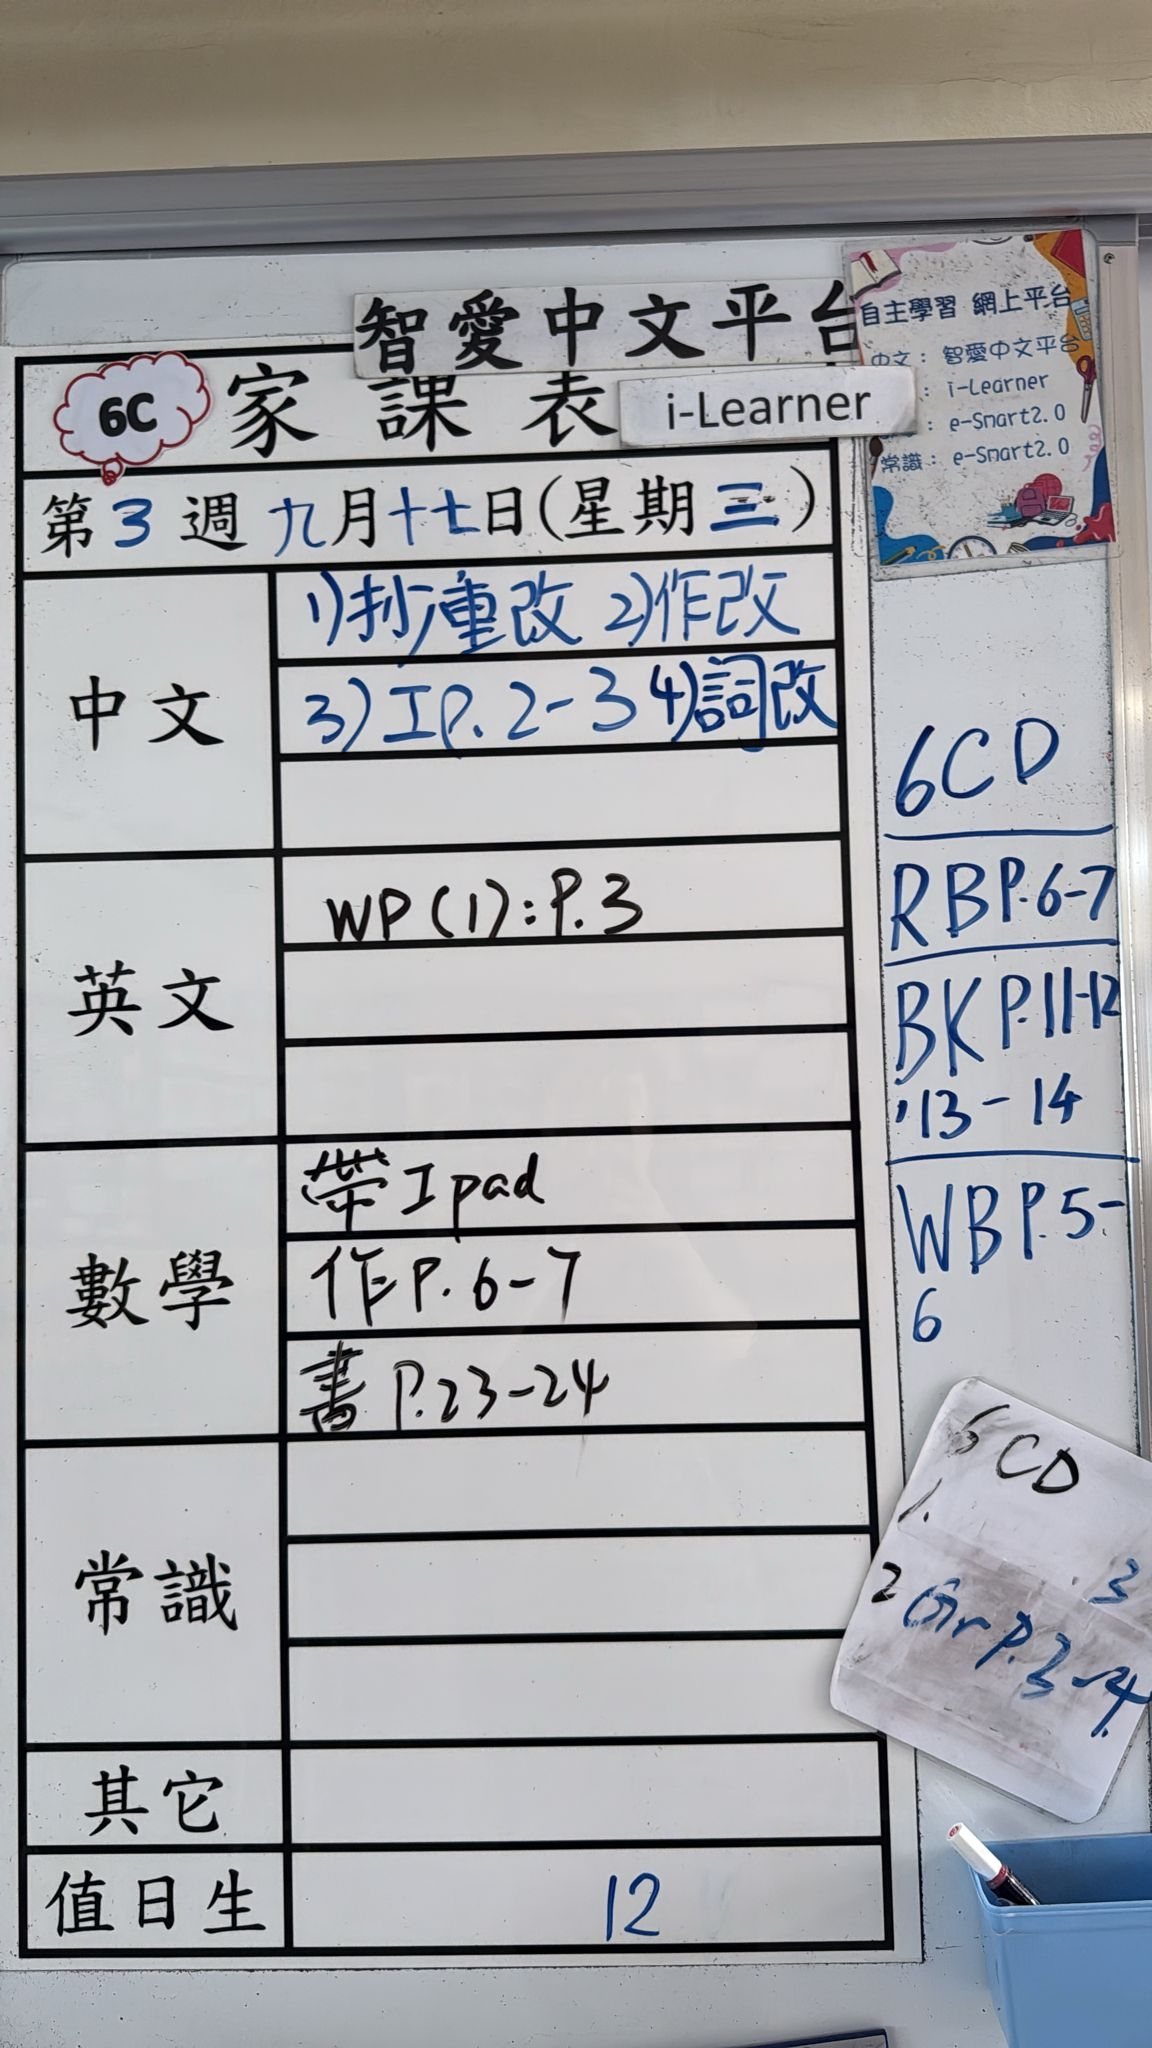 智愛中文平台
6C 家課表
i-Learner
自主學習 網上平台
中文： 智愛中文平台
： i-Learner
： e-Smart2.0
常識： e-Smart2.0
第3週 九月十七日(星期三)
中文
1)抄/重改 2)作改
3) I P. 2-3 4)詞改
英文
WP(1): P.3
數學
帶Ipad
作P. 6-7
書 P.23-24
常識
其它
值日生
12
6CD
RBP.6-7
BK P.11-12
,13-14
WB P.5-
6
6CD
1.
3
2 Gr P.3-4